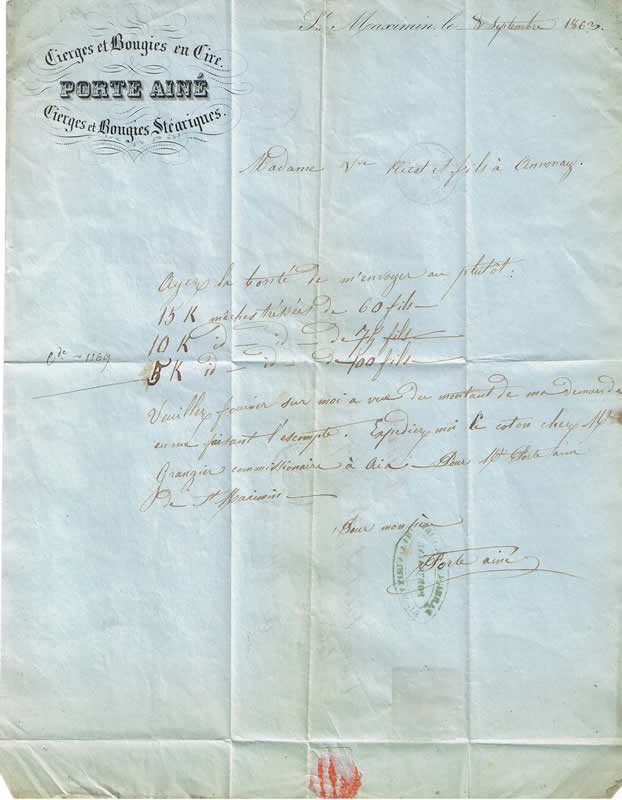 St Maximin, le 8 Septembre 1863.
Cierges et Bougies en Cire.
PORTE AINÉ
Cierges et Bougies Stéariques.
Madame Vve et fils à Annonay.
Ayez la bonté de m'envoyer au plutôt :
15 K mèches tréssées de 60 fils —
10 K id — id — de 75 fils —
Cde — 1169
5 K id — id — de 100 fils —
Veuillez fournir sur moi a vue du montant de ma demande
en me faisant l'escompte. Expediez moi le coton chez Mr
Grangier commissionaire à Aix — Pour Mr Porte ainé
de St Maximin —
Pour mon
Porte ainé